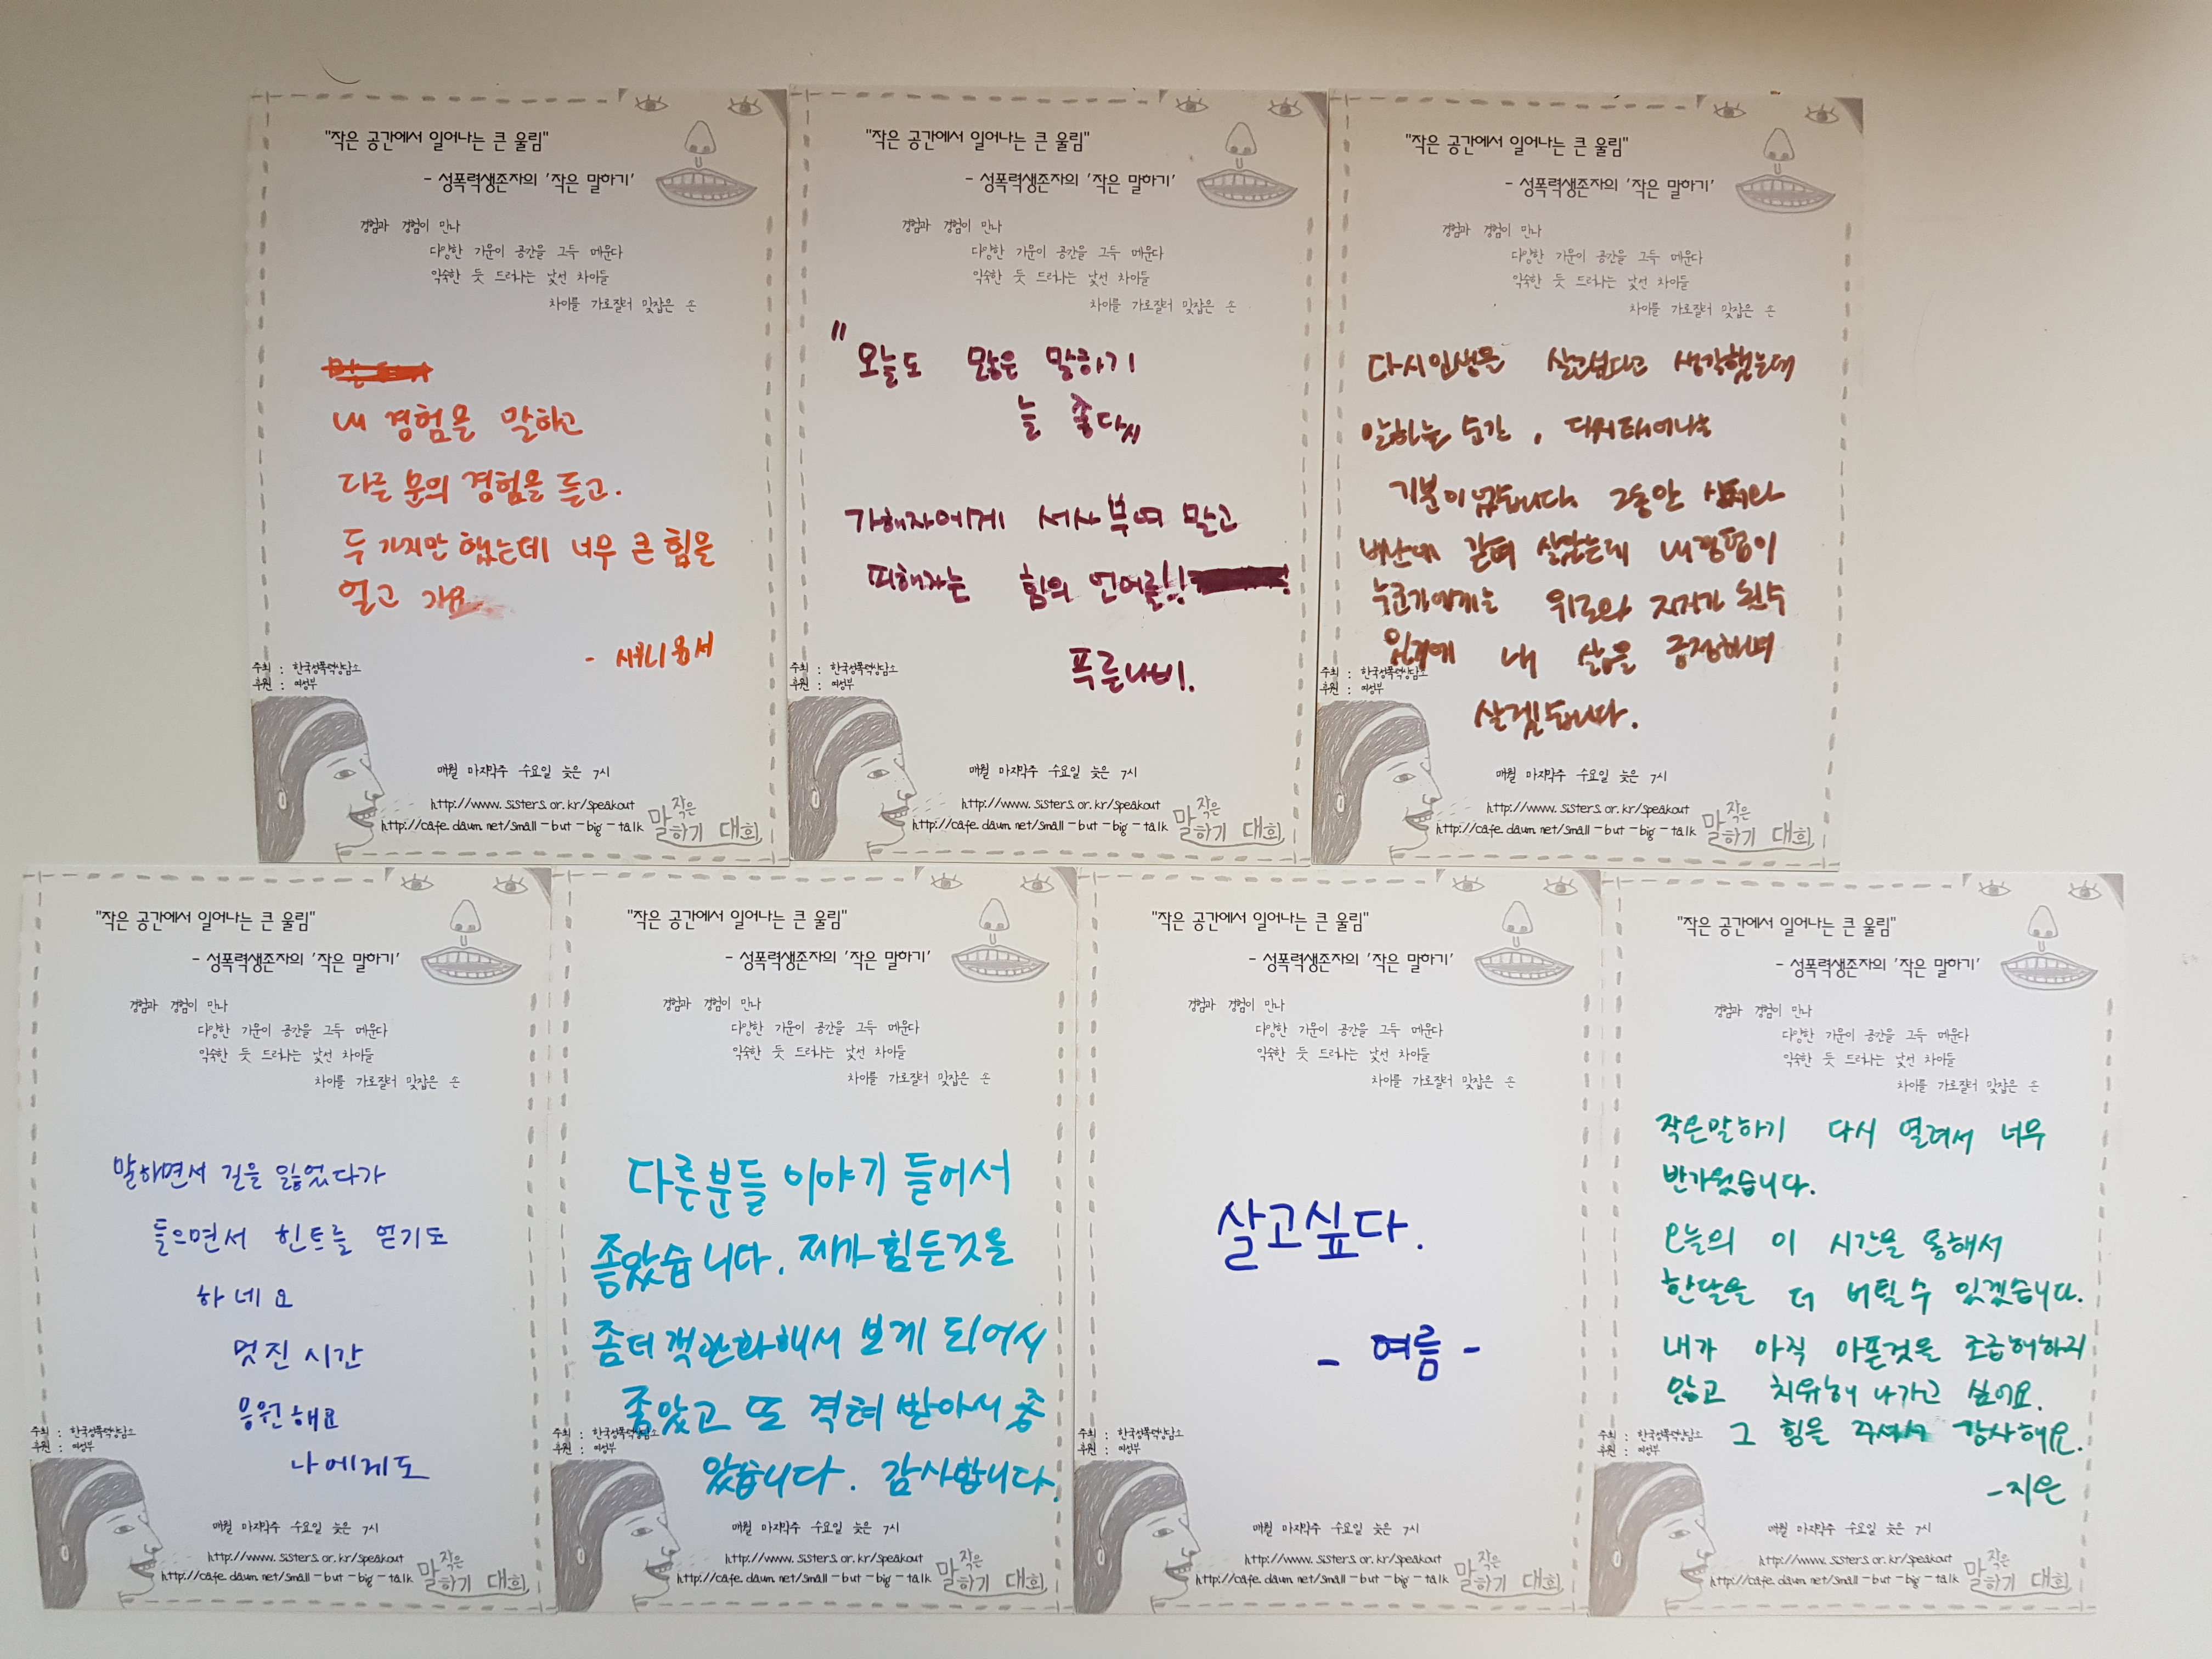 "작은 공간에서 일어나는 큰 울림"
- 성폭력생존자의 '작은 말하기'
경험과 경험이 만나
다양한 기운이 공간을 그득 메운다
익숙한 듯 드러나는 낯선 차이들
차이를 가로질러 맞잡은 손
내 경험을 말하고
다른 분의 경험을 듣고.
두 가지만 했는데 너무 큰 힘을
얻고 가요
주최 : 한국성폭력상담소
후원 : 여성부
매월 마지막주 수요일 늦은 7시
http://www.sisters.or.kr/speakout
http://cafe.daum.net/small-but-big-talk
작은
말하기 대회
"작은 공간에서 일어나는 큰 울림"
- 성폭력생존자의 '작은 말하기'
경험과 경험이 만나
다양한 기운이 공간을 그득 메운다
익숙한 듯 드러나는 낯선 차이들
차이를 가로질러 맞잡은 손
"오늘도 많은 말하기
늘 좋다"
가해자에게 서사 부여 말고
피해자는 힘의 언어를!!
푸른나비.
주최 : 한국성폭력상담소
후원 : 여성부
매월 마지막주 수요일 늦은 7시
http://www.sisters.or.kr/speakout
http://cafe.daum.net/small-but-big-talk
작은
말하기 대회
"작은 공간에서 일어나는 큰 울림"
- 성폭력생존자의 '작은 말하기'
경험과 경험이 만나
다양한 기운이 공간을 그득 메운다
익숙한 듯 드러나는 낯선 차이들
차이를 가로질러 맞잡은 손
다시인생을 살고싶다고 생각했는데
말하는 순간, 다시태어나는
기분이 듭니다. 그동안 상처와
비난에 갇혀 살았는데 내경험이
누군가에게는 위로와 지지가 될수
있기에 내 삶을 긍정하며
살겠습니다.
주최 : 한국성폭력상담소
후원 : 여성부
매월 마지막주 수요일 늦은 7시
http://www.sisters.or.kr/speakout
http://cafe.daum.net/small-but-big-talk
작은
말하기 대회
"작은 공간에서 일어나는 큰 울림"
- 성폭력생존자의 '작은 말하기'
경험과 경험이 만나
다양한 기운이 공간을 그득 메운다
익숙한 듯 드러나는 낯선 차이들
차이를 가로질러 맞잡은 손
말하면서 길을 잃었다가
들으면서 힌트를 얻기도
하네요
멋진 시간
응원해요
나에게도
주최 : 한국성폭력상담소
후원 : 여성부
매월 마지막주 수요일 늦은 7시
http://www.sisters.or.kr/speakout
http://cafe.daum.net/small-but-big-talk
작은
말하기 대회
"작은 공간에서 일어나는 큰 울림"
- 성폭력생존자의 '작은 말하기'
경험과 경험이 만나
다양한 기운이 공간을 그득 메운다
익숙한 듯 드러나는 낯선 차이들
차이를 가로질러 맞잡은 손
다른분들 이야기 들어서
좋았습니다. 제가 힘든것을
좀더 객관화해서 보게 되어서
좋았고 또 격려 받아서 좋
았습니다. 감사합니다.
주최 : 한국성폭력상담소
후원 : 여성부
매월 마지막주 수요일 늦은 7시
http://www.sisters.or.kr/speakout
http://cafe.daum.net/small-but-big-talk
작은
말하기 대회
"작은 공간에서 일어나는 큰 울림"
- 성폭력생존자의 '작은 말하기'
경험과 경험이 만나
다양한 기운이 공간을 그득 메운다
익숙한 듯 드러나는 낯선 차이들
차이를 가로질러 맞잡은 손
살고싶다.
- 여름 -
주최 : 한국성폭력상담소
후원 : 여성부
매월 마지막주 수요일 늦은 7시
http://www.sisters.or.kr/speakout
http://cafe.daum.net/small-but-big-talk
작은
말하기 대회
"작은 공간에서 일어나는 큰 울림"
- 성폭력생존자의 '작은 말하기'
경험과 경험이 만나
다양한 기운이 공간을 그득 메운다
익숙한 듯 드러나는 낯선 차이들
차이를 가로질러 맞잡은 손
작은말하기 다시 열려서 너무
반가웠습니다.
오늘의 이 시간을 통해서
한달을 더 버틸수 있겠습니다.
내가 아직 아픈것을 조급해하지
않고 치유해 나가고 싶어요.
그 힘을 주셔서 감사해요.
- 지은
주최 : 한국성폭력상담소
후원 : 여성부
매월 마지막주 수요일 늦은 7시
http://www.sisters.or.kr/speakout
http://cafe.daum.net/small-but-big-talk
작은
말하기 대회